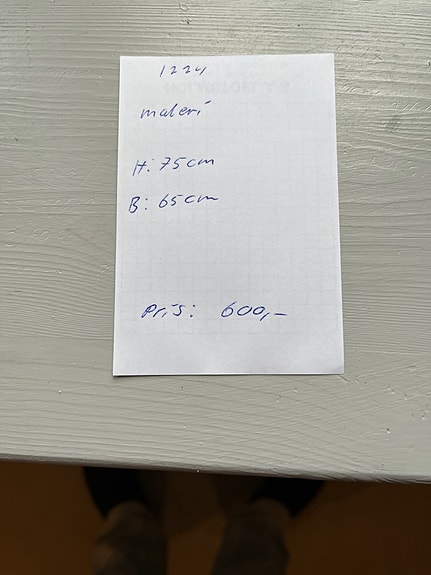 1224
maleri
H: 75cm
B: 65cm
Pris: 600,-